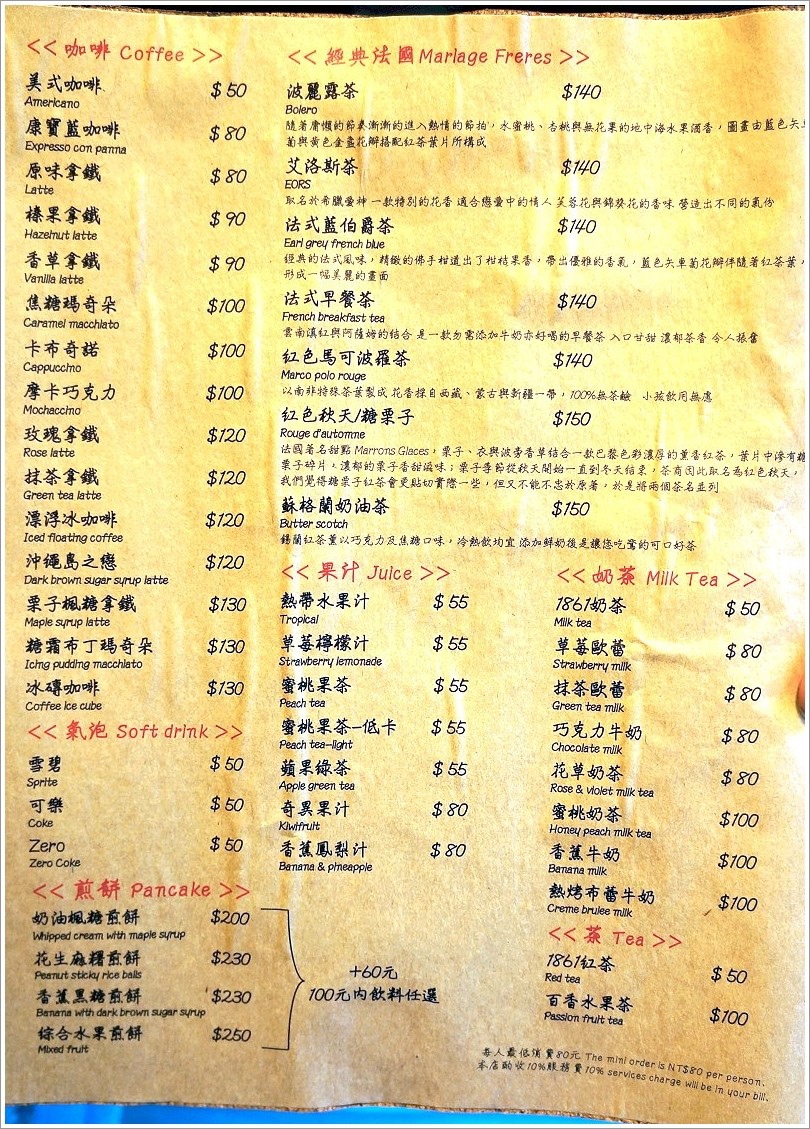 << 咖啡 Coffee >>
美式咖啡 $50
Americano
康寶藍咖啡 $80
Expresso con panna
原味拿鐵 $80
Latte
榛果拿鐵 $90
Hazelnut latte
香草拿鐵 $90
Vanilla latte
焦糖瑪奇朵 $100
Caramel macchiato
卡布奇諾 $100
Cappuccino
摩卡巧克力 $100
Mochaccino
玫瑰拿鐵 $120
Rose latte
抹茶拿鐵 $120
Green tea latte
漂浮冰咖啡 $120
Iced floating coffee
沖繩島之戀 $120
Dark brown sugar syrup latte
栗子楓糖拿鐵 $130
Maple syrup latte
糖霜布丁瑪奇朵 $130
Icing pudding macchiato
冰磚咖啡 $130
Coffee ice cube
<< 氣泡 Soft drink >>
雪碧 $50
Sprite
可樂 $50
Coke
Zero $50
Zero Coke
<< 煎餅 Pancake >>
奶油楓糖煎餅 $200
Whipped cream with maple syrup
花生麻糬煎餅 $230
Peanut sticky rice balls
香蕉黑糖煎餅 $230
Banana with dark brown sugar syrup
綜合水果煎餅 $250
Mixed fruit
+60元
100元內飲料任選
<< 經典法國Mariage Freres >>
波麗露茶 $140
Bolero
隨著慵懶的節奏漸漸的進入熱情的節拍，水蜜桃、杏桃與無花果的地中海水果酒香，圖畫由藍色矢車
菊與黃色金盞花瓣搭配紅茶葉片所構成
艾洛斯茶 $140
EORS
取名於希臘愛神 一款特別的花香 適合戀愛中的情人 芙蓉花與錦葵花的香味 營造出不同的氣份
法式藍伯爵茶 $140
Earl grey french blue
經典的法式風味，精緻的佛手柑道出了柑桔果香，帶出優雅的香氣，藍色矢車菊花瓣伴隨著紅茶葉，
形成一幅美麗的畫面
法式早餐茶 $140
French breakfast tea
雲南滇紅與阿薩姆的結合 是一款勿需添加牛奶亦好喝的早餐茶 入口甘甜 濃郁茶香 令人振奮
紅色馬可波羅茶 $140
Marco polo rouge
以南非特殊茶葉製成 花香採自西藏、蒙古與新疆一帶，100%無茶鹼 小孩飲用無慮
紅色秋天/糖栗子 $150
Rouge d'automme
法國著名甜點 Marrons Glaces，栗子、衣與波旁香草結合一款巴黎色彩濃厚的薰香紅茶，葉片中滲有糖
栗子碎片，濃郁的栗子香甜滋味；栗子季節從秋天開始一直到冬天結束，茶商因此取名為紅色秋天，
我們覺得糖栗子紅茶會更貼切實際一些，但又不能不忠於原著，於是將兩個茶名並列
蘇格蘭奶油茶 $150
Butter scotch
錫蘭紅茶薰以巧克力及焦糖口味，冷熱飲均宜 添加鮮奶後是讓您吃驚的可口好茶
<< 果汁 Juice >>
熱帶水果汁 $55
Tropical
草莓檸檬汁 $55
Strawberry lemonade
蜜桃果茶 $55
Peach tea
蜜桃果茶-低卡 $55
Peach tea-light
蘋果綠茶 $55
Apple green tea
奇異果汁 $80
Kiwifruit
香蕉鳳梨汁 $80
Banana & pineapple
<< 奶茶 Milk Tea >>
1861奶茶 $50
Milk tea
草莓歐蕾 $80
Strawberry milk
抹茶歐蕾 $80
Green tea milk
巧克力牛奶 $80
Chocolate milk
花草奶茶 $80
Rose & violet milk tea
蜜桃奶茶 $100
Honey peach milk tea
香蕉牛奶 $100
Banana milk
熱烤布蕾牛奶 $100
Creme brulee milk
<< 茶 Tea >>
1861紅茶 $50
Red tea
百香水果茶 $100
Passion fruit tea
每人最低消費80元 The mini order is NT$80 per person.
本店酌收10%服務費10% services charge will be in your bill.